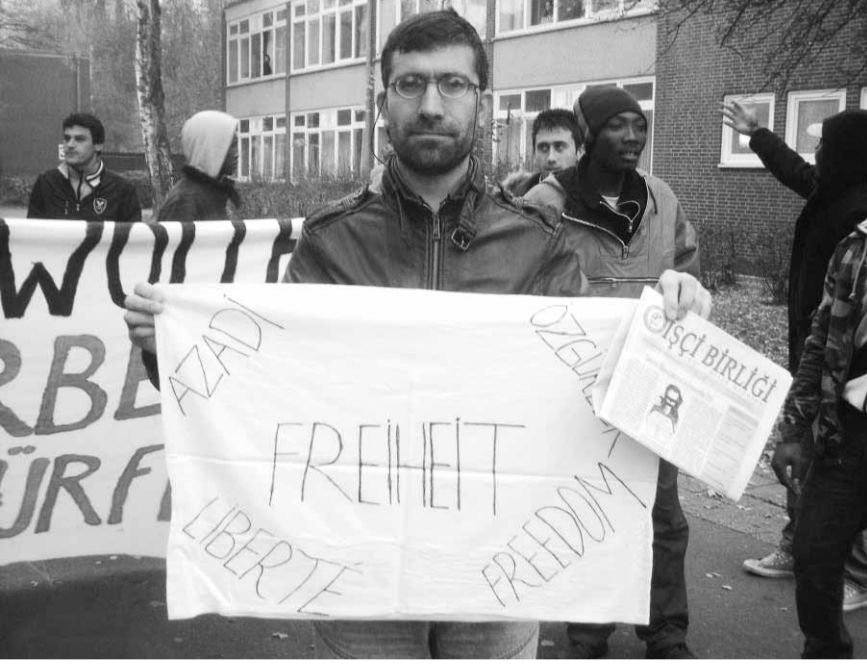 WOLL
RBE
ÜRF
AZADİ
FREİHEİT
LIBERTÉ
FREEDOM
İŞÇİ BİRLİĞİ